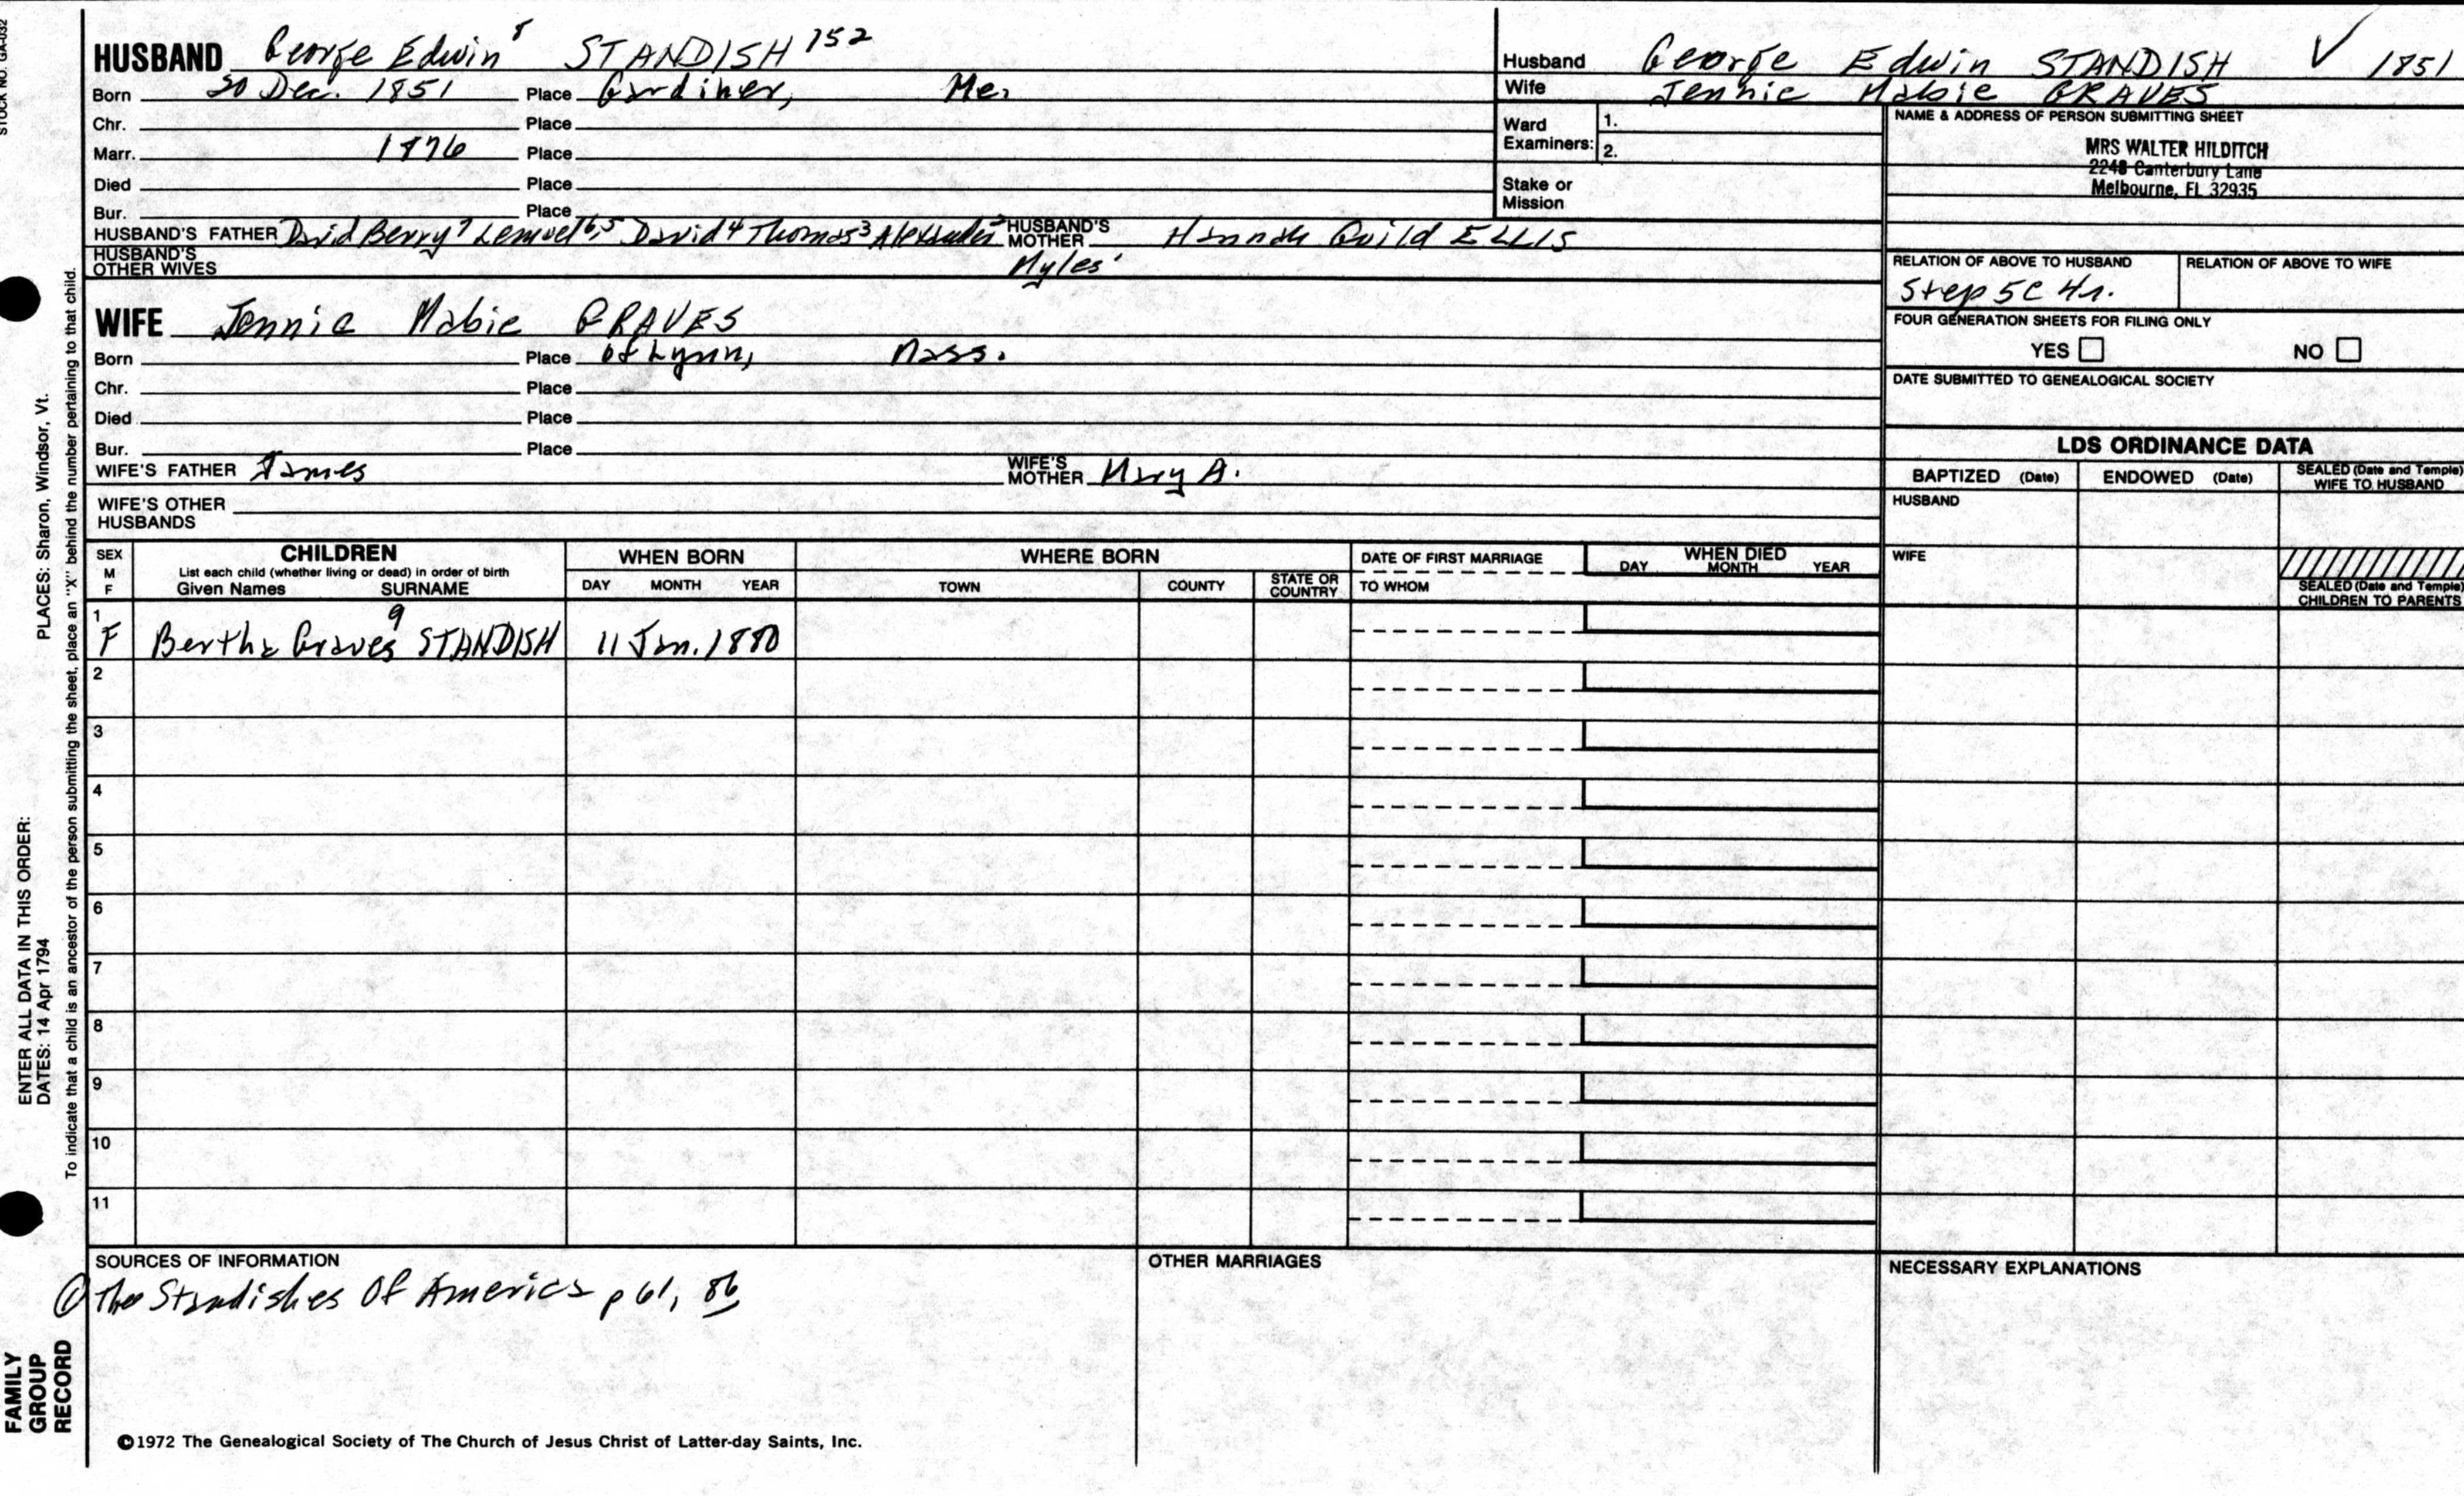 STOCK NO. GA-032
HUSBAND George Edwin 8 STANDISH 152
Born 20 Dec. 1851 Place Gardiner, Me.
Chr. Place
Marr. 1876 Place
Died Place
Bur. Place
HUSBAND'S FATHER David Berry 7 Lemuel 6,5 David 4 Thomas 3 Alexander 2 HUSBAND'S MOTHER Hannah Guild ELLIS
HUSBAND'S OTHER WIVES Myles 1
WIFE Jennie Mabie GRAVES
Born Place of Lynn, Mass.
Chr. Place
Died Place
Bur. Place
WIFE'S FATHER James WIFE'S MOTHER Mary A.
WIFE'S OTHER HUSBANDS
Husband George Edwin STANDISH V 1851
Wife Jennie Mabie GRAVES
Ward Examiners: 1.
2.
Stake or Mission
NAME & ADDRESS OF PERSON SUBMITTING SHEET
MRS WALTER HILDITCH
2248 Canterbury Lane
Melbourne, FL 32935
RELATION OF ABOVE TO HUSBAND RELATION OF ABOVE TO WIFE
Step 5C 4r.
FOUR GENERATION SHEETS FOR FILING ONLY
YES NO
DATE SUBMITTED TO GENEALOGICAL SOCIETY
LDS ORDINANCE DATA
BAPTIZED (Date) ENDOWED (Date) SEALED (Date and Temple) WIFE TO HUSBAND
HUSBAND
WIFE
SEALED (Date and Temple) CHILDREN TO PARENTS
SEX M F
CHILDREN
List each child (whether living or dead) in order of birth
Given Names SURNAME
WHEN BORN
DAY MONTH YEAR
WHERE BORN
TOWN COUNTY STATE OR COUNTRY
DATE OF FIRST MARRIAGE
TO WHOM
WHEN DIED
DAY MONTH YEAR
1 F Bertha Graves 9 STANDISH 11 Jan. 1880
2
3
4
5
6
7
8
9
10
11
SOURCES OF INFORMATION
The Standishes Of America p 61, 86
OTHER MARRIAGES
NECESSARY EXPLANATIONS
©1972 The Genealogical Society of The Church of Jesus Christ of Latter-day Saints, Inc.
FAMILY GROUP RECORD
ENTER ALL DATA IN THIS ORDER:
DATES: 14 Apr 1794
PLACES: Sharon, Windsor, Vt.
To indicate that a child is an ancestor of the person submitting the sheet, place an "X" behind the number pertaining to that child.